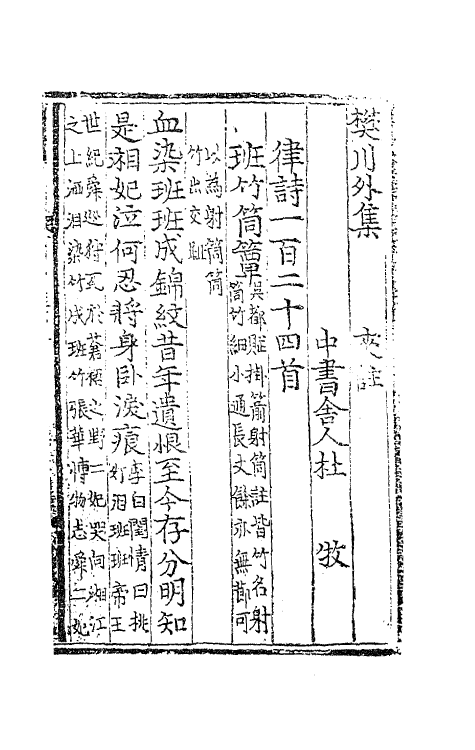 樊川外集　　夾註
中書舍人杜　牧
律詩一百二十四首
班竹筒簟吳都賦掛簫射筒註皆竹名射
筒竹細小通長丈餘亦無節可
以為射筒筒
竹出交趾
血染班班成錦紋昔年遺恨至今存分明知
是湘妃泣何忍將身臥淚痕李白閨情曰挑
灯泪班班帝王
世紀舜巡狩死於蒼梧之野二妃哭向湘江
之上洒泪染竹成班竹張華愽物志舜二妃